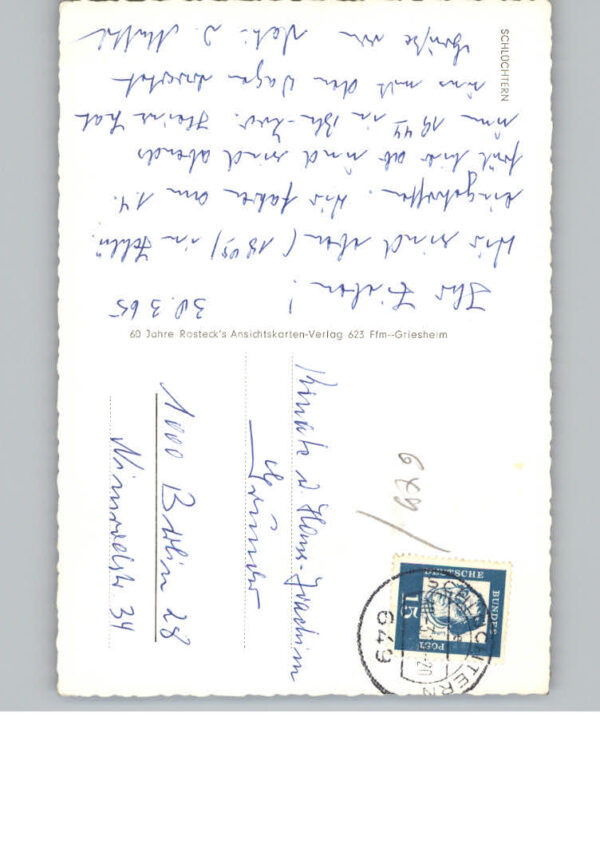 SCHLÜCHTERN
30.3.65
Ihr Lieben!
Wir sind eben (1805) in Schlü.
eingetroffen. Wir fahren am 1.4.
früh hier ab und sind abends
um 1944 in Bln-Zoo. Heinz hat
uns mit dem Wagen erwartet
Grüße von Vati u. Mutti
60 Jahre Rosteck's Ansichtskarten-Verlag 623 Ffm--Griesheim
u. Hans-Joachim
1000 Berlin 28
Nimrodstr. 34
DEUTSCHE
BUNDES
POST
15
SCHLÜCHTERN
649